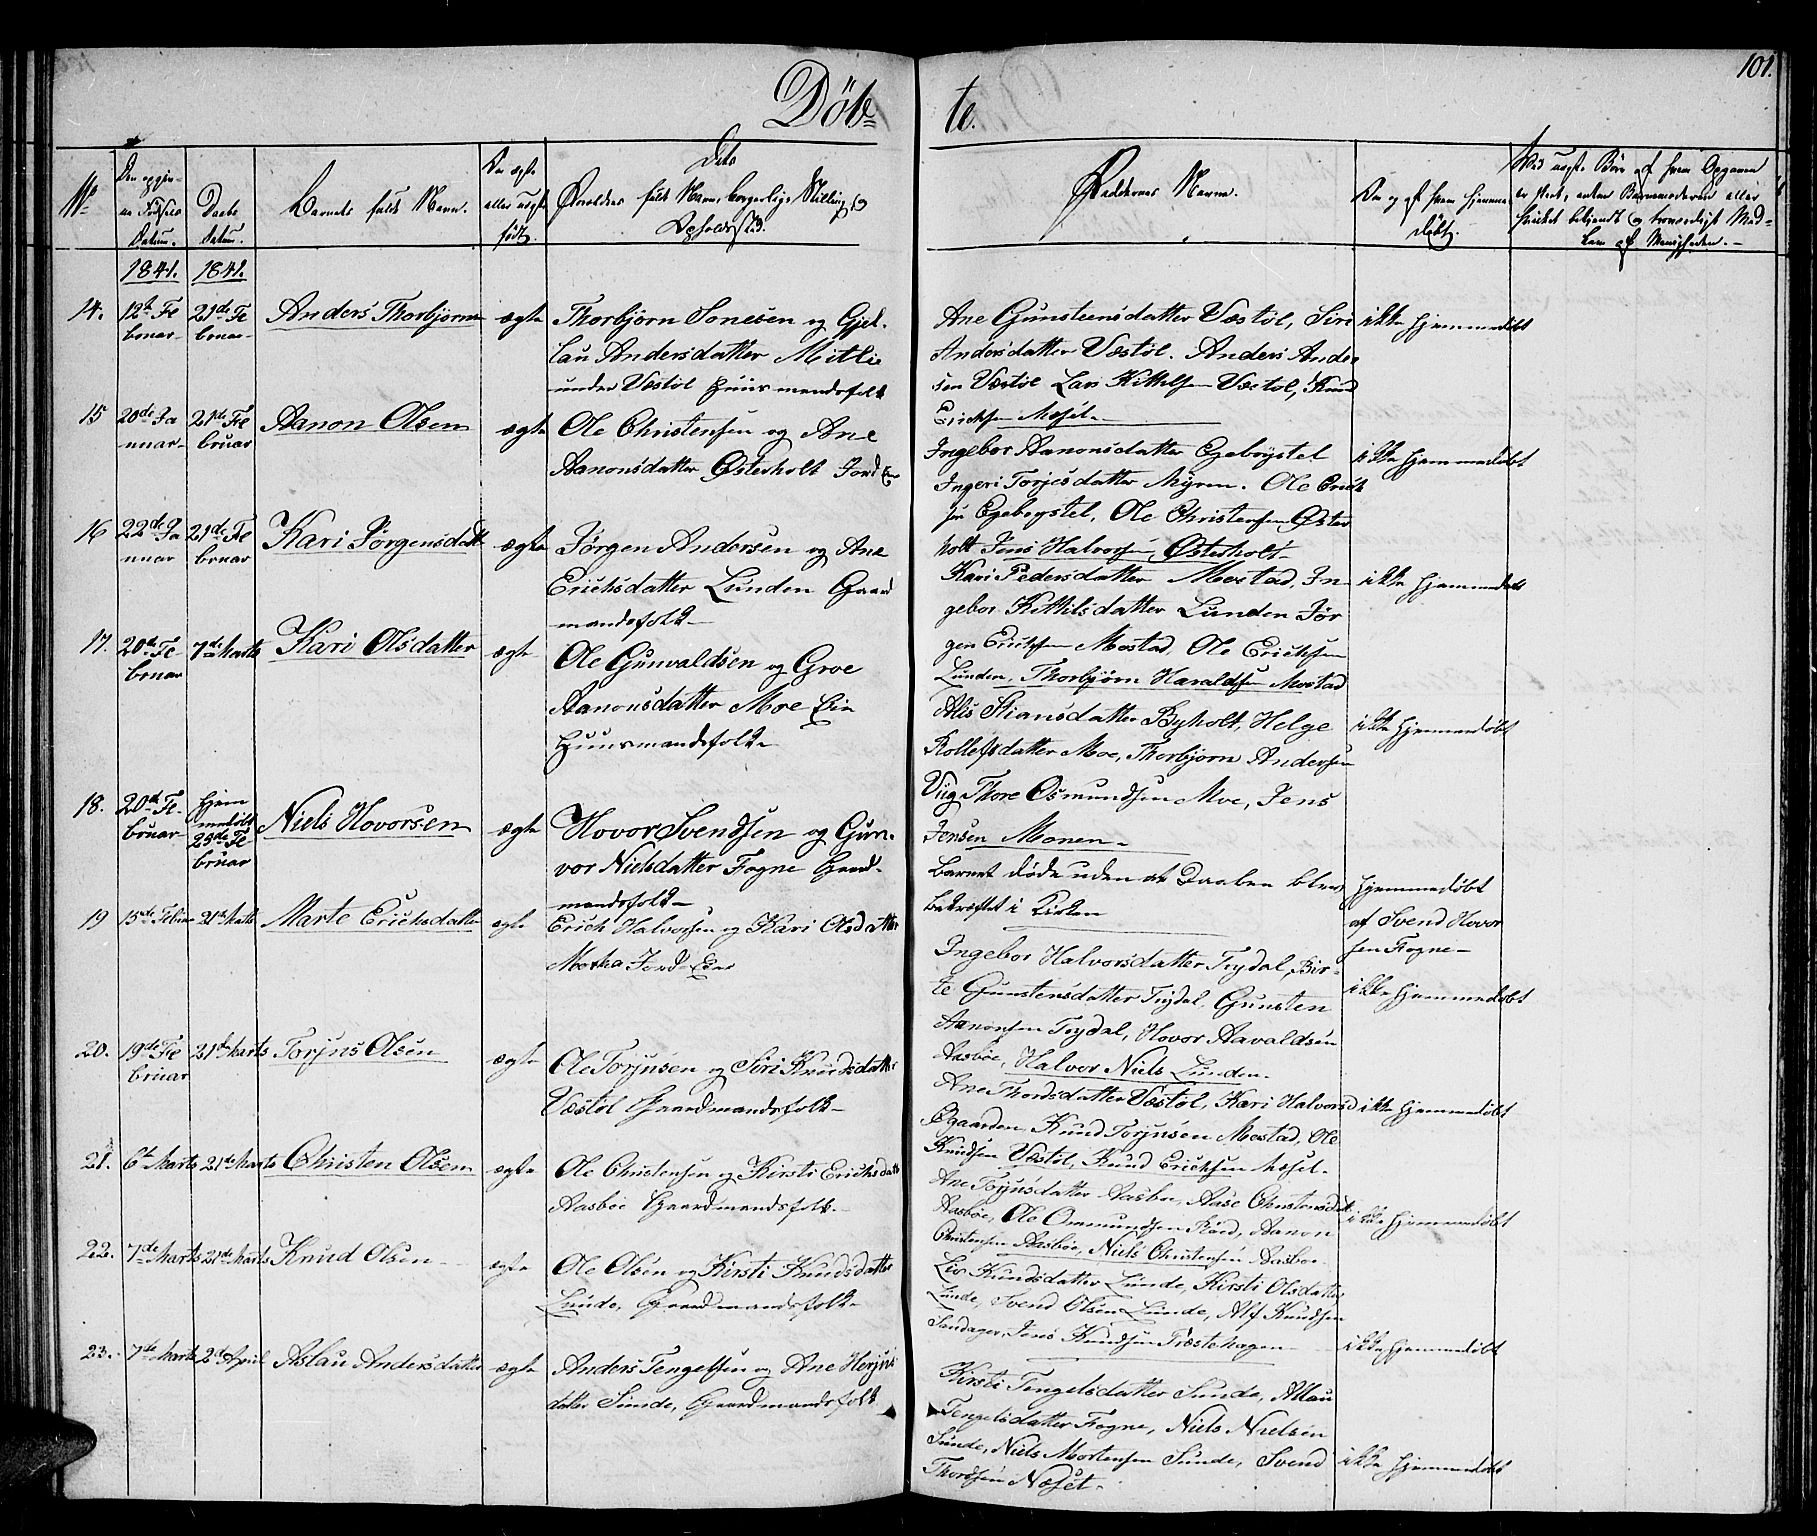 101.
Döb=
te.
No
Den opgiv=
ne Fødsels
Datum.
Daabs
Datum.
Barnets fulde Navn.
Om ægte
eller uægte
født.
Dets
Forældres fulde Navn, borgerlige Stilling og
Opholdssted.
Faddernes Navne.
Om og af hvem hjemme
døbt.
Ved uægte Børn af hvem Opgaven
er skeet, enten Barnemoderen eller
hvilket bekjendt og troværdigt Med=
lem af Menigheden.
1841.
1841.
14.
12te Fe
bruar
21de Fe
bruar
Anders Thorbjørns
ægte
Thorbjørn Sonesen og Gjel
lau Andersdatter Mitlie
under Væstöl Huusmandsfolk
Ane Gunsteensdatter Væstöl, Siri
Andersdatter Væstöl. Anders Ander
sen Væstöl Lars Kittelsen Væstöl, Knud
Erichsen Mosel.
ikke hjemmedöbt
15
20de Ja
nuar
21de Fe
bruar
Aanon Olsen
ægte
Ole Christensen og Ane
Aanonsdatter Østerholt Jord Eier
Ingebor Aanonsdatter Egebøystel
Ingeri Torjesdatter Myren. Ole Erich
sen Egebøystel, Ole Christensen Øster
holt Jens Halvorsen, Østerholt
ikke hjemmedöbt
16
22de Ja
nuar
21de Fe
bruar
Kari Jørgensdatt
ægte
Jørgen Andersen og Ane
Erichsdatter Lunden Gaard
mandsfolk
Kari Pedersdatter Mostad, In
gebor Kittilsdatter Lunden Jør
gen Erichsen Mostad Ole Erichsen
Lunden, Thorbjørn Haraldsen Mostad
ikke hjemmedöbt
17.
20de Fe
bruar
7de Marts
Kari Olsdatter
ægte
Ole Gunvaldsen og Groe
Aanonsdatter Moe Eie
Huusmandsfolk
Alis Stiansdatter Ryholt, Helge
Rollefsdatter Moe, Thorbjørn Andersen
Viig Thore Osmundsen Moe, Jens
Jensen Monen
ikke hjemmedöbt
18.
20de Fe
bruar
hjem
medöbt
23de Fe
bruar
Niels Hovorsen
ægte
Hovor Svendsen og Gun
vor Nielsdatter Fogne Gaard
mandsfolk
Barnet döde uden at Daaben blev
bekræftet i Kirken
hjemmedöbt
af Svend Hovor
sen Fogne
19
15de Februar
21de Marts
Marte Erichsdatter
ægte
Erich Halvorsen og Kari Olsdatter
Morka Jord-Eier
Ingebor Halvorsdatter Trydal, Bir
te Gunstensdatter Trydal, Gunsten
Aanonsen Trydal, Hovor Aavaldsen
Aasböe, Halvor Niels Lunden.
ikke hjemmedöbt
20.
19de Fe
bruar
21de Marts
Torjus Olsen
ægte
Ole Torjusen og Siri Knudsdatter
Væstöl Gaardmandsfolk
Ane Thordsdatter Væstöl, Kari Halvorsd
Øgaarden Knud Torjusen Mostad, Ole
Knudsen Væstöl, Knud Erichsen Mosel.
ikke hjemmedöbt
21.
6te Marts
21de Marts
Christen Olsen
ægte
Ole Christensen og Kirsti Erichsdatter
Aasböe Gaardmandsfolk
Ane Torjusdatter Aasböe, Aase Christensdatt
Aasböe, Ole Ommundsen Röed, Aanon
Christensen Aasböe, Niels Christensen Aasböe
ikke hjemmedöbt
22.
7de Marts
21de Marts
Knud Olsen
ægte
Ole Olsen og Kirsti Knudsdatter
Lunde, Gaardmandsfolk
Liv Knudsdatter Lunde, Kirsti Olsdatter
Lunde, Svend Olsen Lunde, Alf Knudsen
Sandager, Jens Knudsen Træstehagen
ikke hjemmedöbt
23.
7de Marts
2d April
Aslau Andersdatter
ægte
Anders Tengelsen og Ane Herjus
datter Sunde, Gaardmandsfolk
Kirsti Tengelsdatter Sunde, Aslau
Tengelsdatter Fogne, Niels Nielsen
Sunde, Niels Mortensen Sunde, Svend
Thordsen Næset.
ikke hjemmedöbt